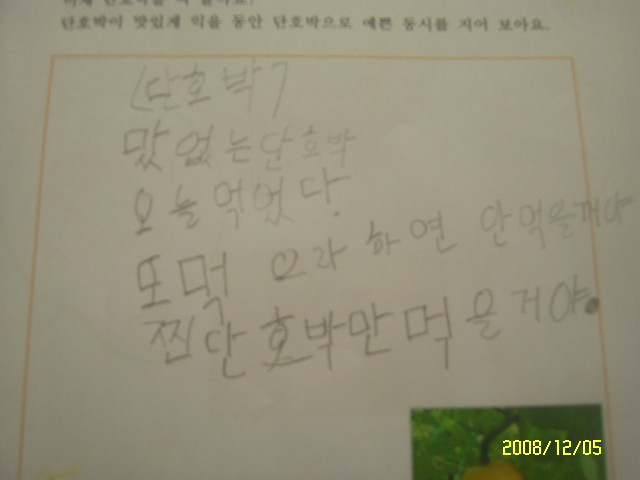 단호박이 맛있게 익을 동안 단호박으로 예쁜 동시를 지어 보아요.
(단호박)
맛없는단호박
오늘먹었다.
또먹으라하면 안먹을깨야
찐단호박만먹을거야.
2008/12/05